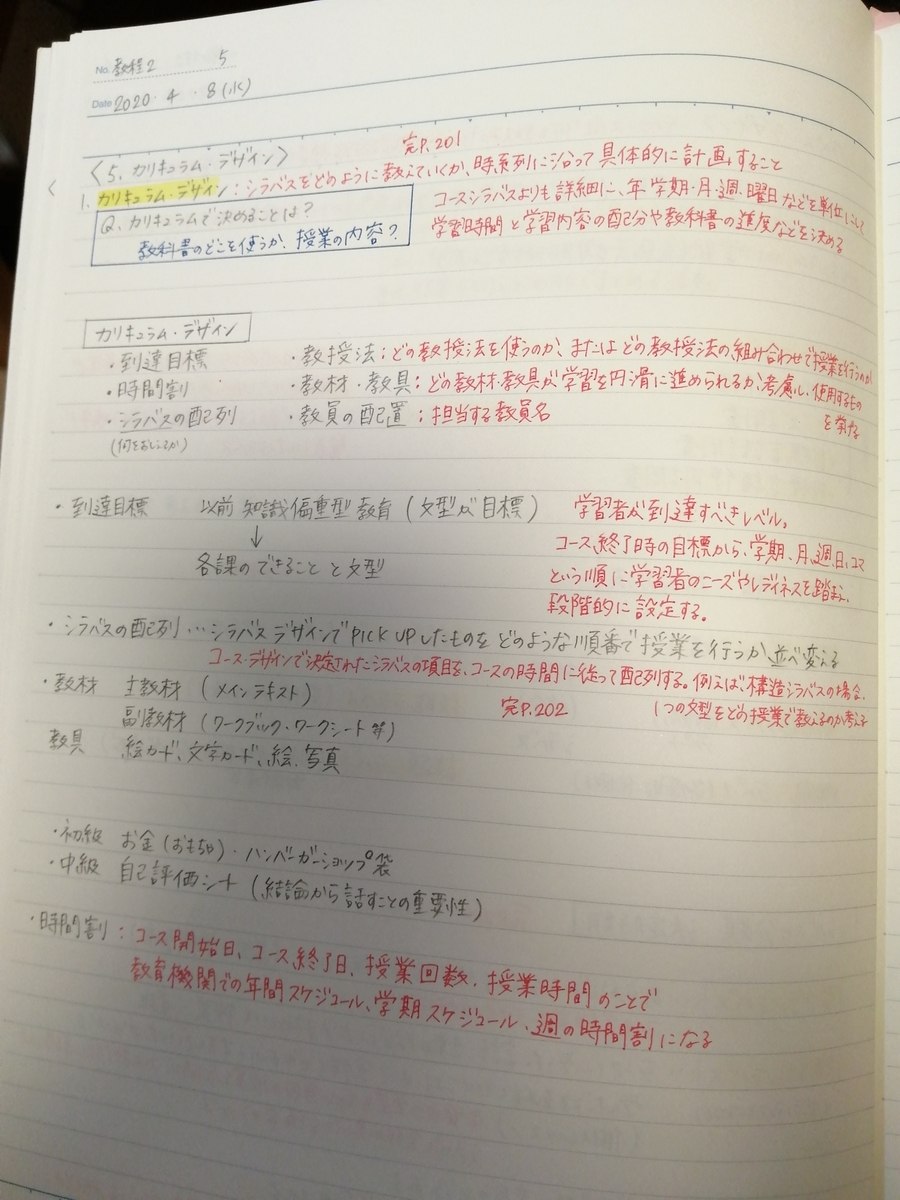 No. 教程2 5
Date 2020・4・8(水)
〈5. カリキュラム・デザイン〉
完P.201
1. カリキュラム・デザイン：シラバスをどのように教えていくか、時系列に沿って具体的に計画すること
コースシラバスよりも詳細に、年・学期・月・週・曜日などを単位にして
学習時間と学習内容の配分や教科書の進度などを決める
Q. カリキュラムで決めることは？
教科書のどこを使うか、授業の内容？
カリキュラム・デザイン
・到達目標
・時間割
・シラバスの配列
(何をおしえるか)
・教授法：どの教授法を使うのか、またはどの教授法の組み合わせで授業を行うのか
・教材・教具：どの教材・教具が学習を円滑に進められるか考慮し、使用するもの
を挙げる
・教員の配置：担当する教員名
・到達目標 以前 知識偏重型教育（文型が目標）
↓
各課のできることと文型
学習者が到達すべきレベル。
コース終了時の目標から、学期、月、週、日、コマ
という順に学習者のニーズやレディネスを踏まえ、
段階的に設定する。
・シラバスの配列…シラバスデザインでPICK UPしたものをどのような順番で授業を行うか並べ変える
コース・デザインで決定されたシラバスの項目を、コースの時間に従って配列する。例えば、構造シラバスの場合、
1つの文型をどの授業で教えるのか考える
完P.202
・教材 主教材（メインテキスト）
副教材（ワークブック・ワークシート等）
教具 絵カード、文字カード、絵、写真
・初級 お金（おもちゃ）・ハンバーガーショップ袋
・中級 自己評価シート（結論から話すことの重要性）
・時間割：コース開始日、コース終了日、授業回数、授業時間のことで
教育機関での年間スケジュール、学期スケジュール、週の時間割になる